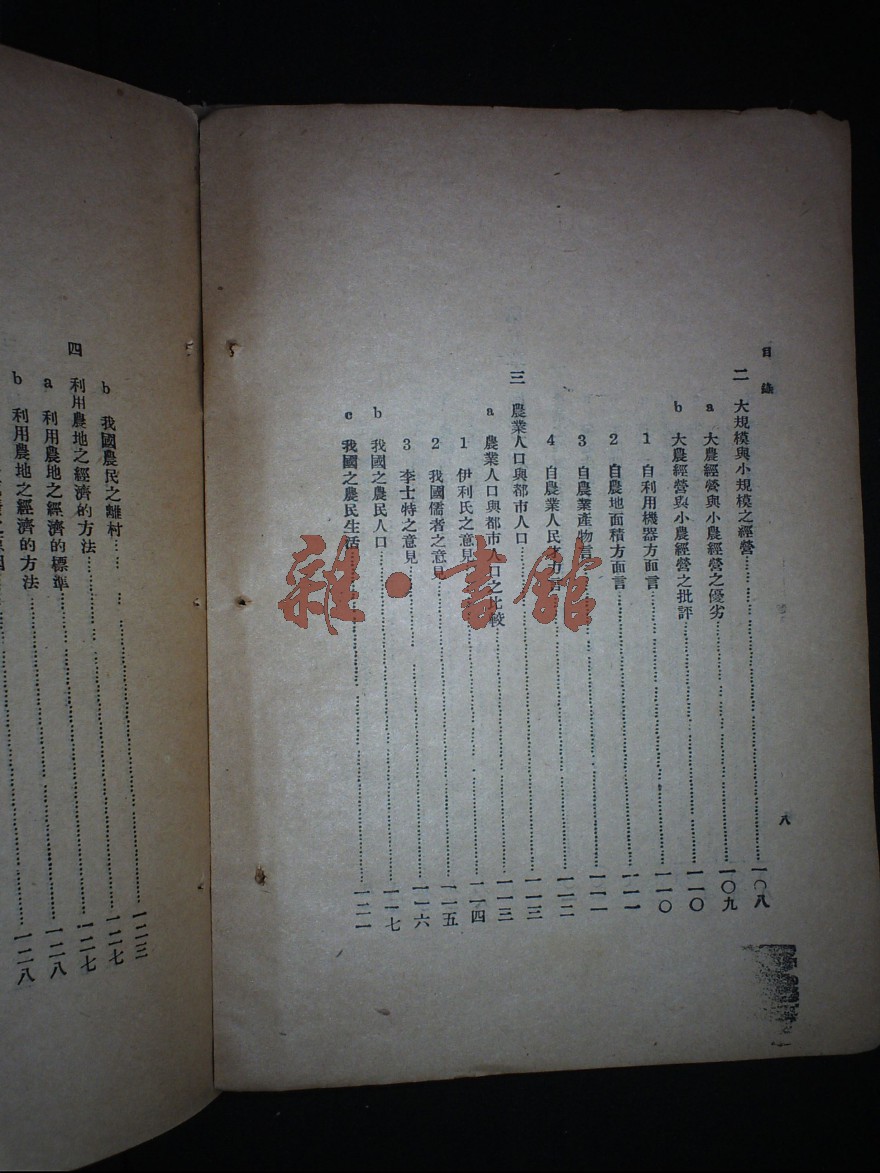 目錄
八
二 大規模與小規模之經營……一〇八
a 大農經營與小農經營之優劣……一〇九
b 大農經營與小農經營之批評……一一〇
1 自利用機器方面言……一一〇
2 自農地面積方面言……一一一
3 自農業產物言……一一一
4 自農業人民之方言……一一二
三 農業人口與都市人口……一一三
a 農業人口與都市人口之比較……一一三
1 伊利氏之意見……一一四
2 我國儒者之意見……一一五
3 李士特之意見……一一六
b 我國之農民人口……一一七
c 我國之農民生活……一二一
b 我國農民之離村……一二三
四 利用農地之經濟的方法……一二七
a 利用農地之經濟的標準……一二七
b 利用農地之經濟的方法……一二八
一二八
雜·書館